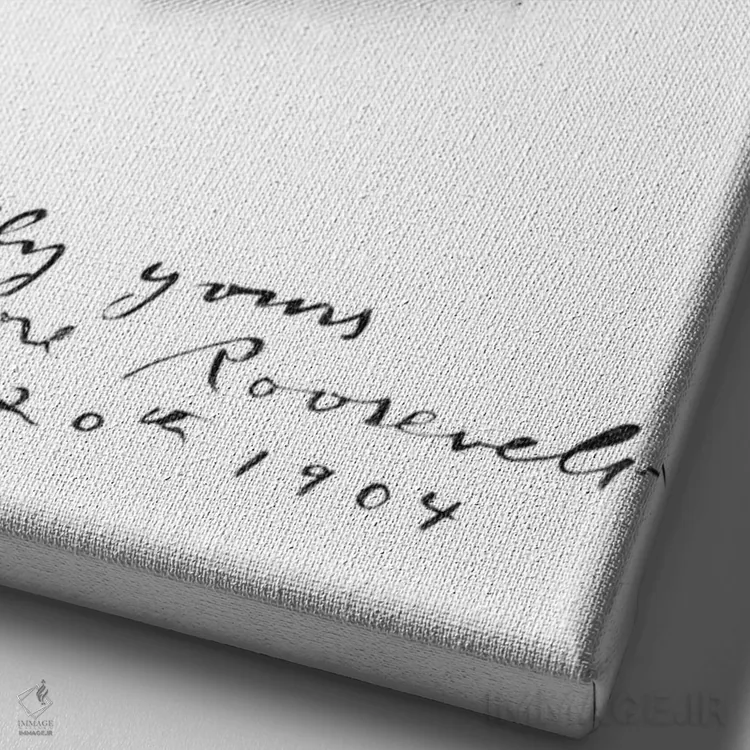 ly yours
ore Roosevelt
20th 1904
IMMAGE
IMMAGE.IR
IMMAGE.IR